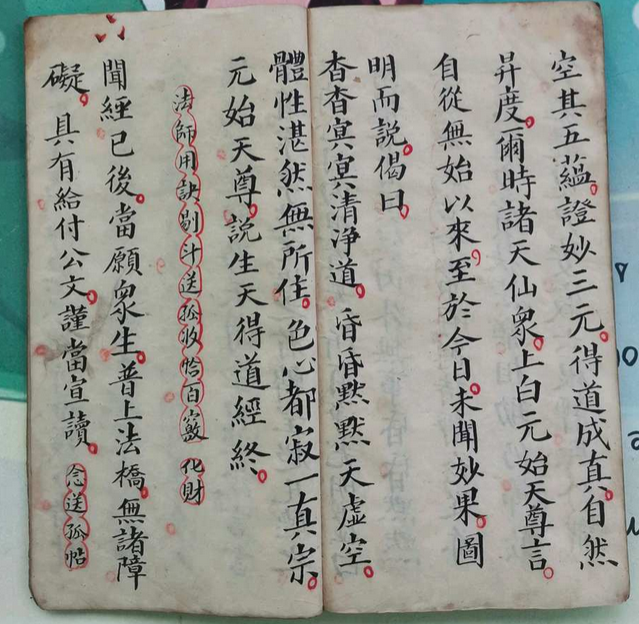 空其五蘊證妙三元得道成真自然
昇度爾時諸天仙衆上白元始天尊言
自從無始以來至於今日未聞妙果圖
明而說偈曰
杳杳冥冥清浄道昏昏默默天虛空
體性湛然無所住色心都寂一真宗
元始天尊說生天得道經終
法師用訣剔斗送孤收
百
化財
聞經已後當願衆生普上法橋無諸障
礙具有給付公文謹當宣讀
念送孤帖